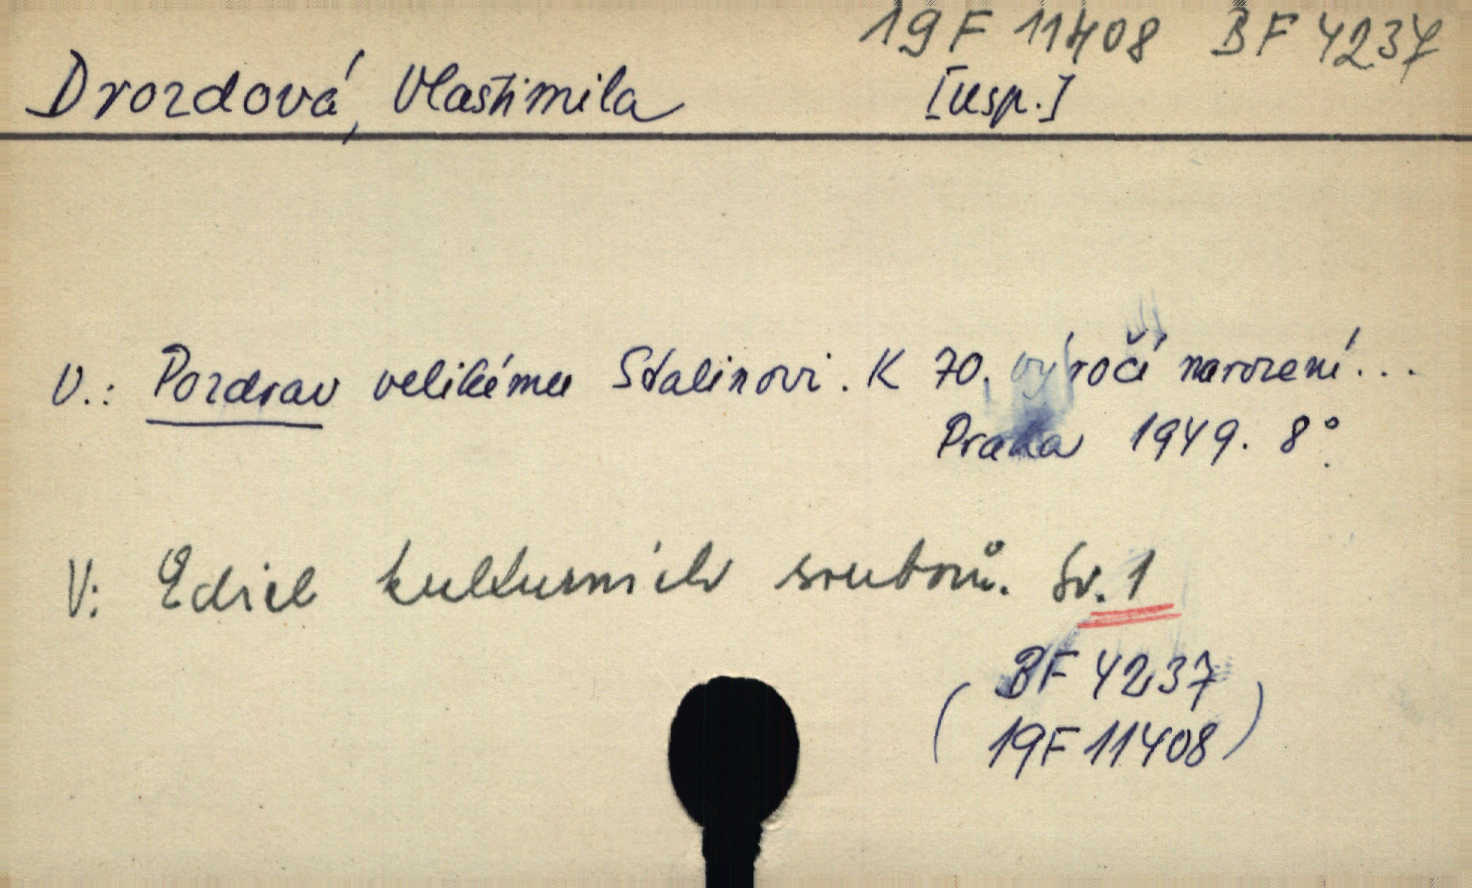 19 F 11408 BF 4237
Drozdová, Vlastimila [usp.]
V.: Pozdrav velikému Stalinovi. K 70. výročí narození...
Praha 1949. 8°.
V: Edice kulturních souborů. Sv. 1
( BF 4237
19F 11408 )